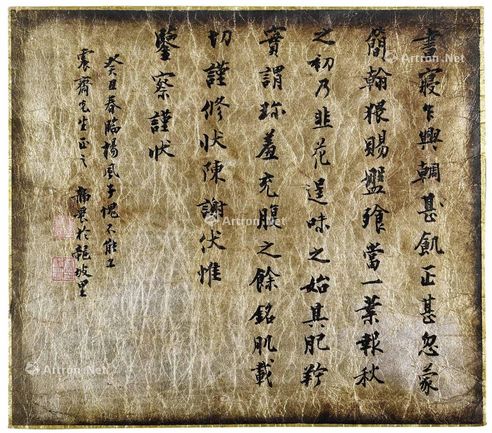 晝寢乍興輖甚飢正甚忽蒙
簡翰猥賜盤飧當一葉報秋
之初乃韭花逞味之始其肥羜
實謂珍羞充腹之餘銘肌載
切謹修狀陳謝伏惟
鑒察謹狀
癸丑春臨楊風子愧不能工
齋先生正之 靜農於龍坡里
Artron.Net
Artron.Net
Artron.Net
Artron.Net
Artron.Net